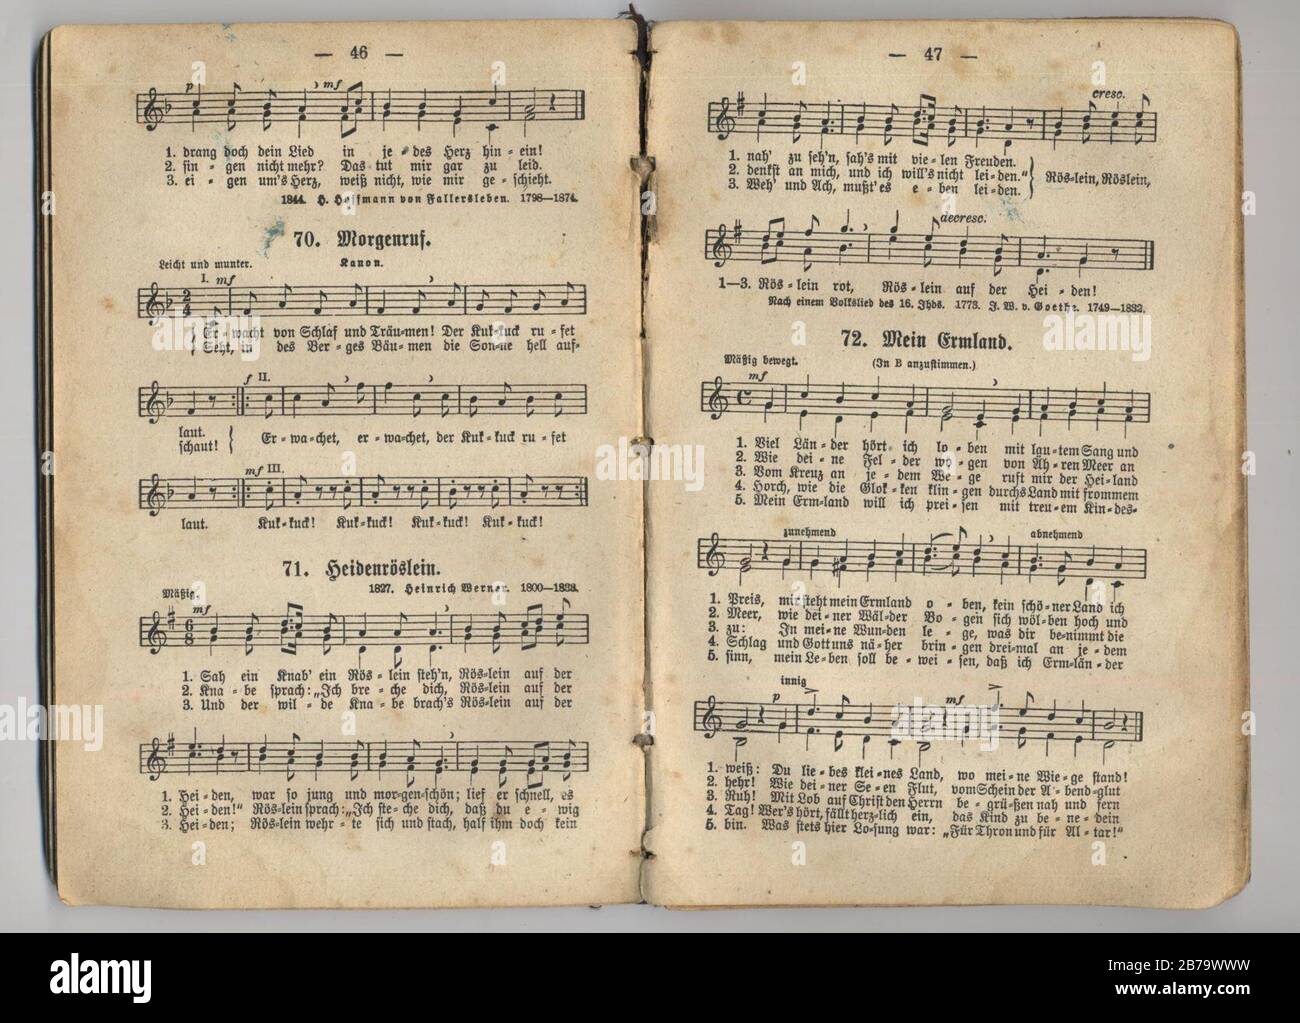 — 46 —
p mf
1. drang doch dein Lied in je-des Herz hin-ein!
2. sin-gen nicht mehr? Das tut mir gar zu leid.
3. ei-gen um's Herz, weiß nicht, wie mir ge-schieht.
1844. H. Hoffmann von Fallersleben. 1798—1874.
70. Morgenruf.
Leicht und munter. Kanon.
I. mf
Er-wacht von Schlaf und Träu-men! Der Kuk-kuck ru-fet
Seht, in des Ber-ges Bäu-men die Son-ne hell auf-
f II.
laut. Er-wa-chet, er-wa-chet, der Kuk-kuck ru-fet
schaut!
mf III.
laut. Kuk-kuck! Kuk-kuck! Kuk-kuck! Kuk-kuck!
71. Heidenröslein.
Mäßig. 1827. Heinrich Werner. 1800—1833.
mf
1. Sah ein Knab' ein Rös-lein steh'n, Rös-lein auf der
2. Kna-be sprach: „Ich bre-che dich, Rös-lein auf der
3. Und der wil-de Kna-be brach's Rös-lein auf der
1. Hei-den, war so jung und mor-gen-schön; lief er schnell, es
2. Hei-den!" Rös-lein sprach: „Ich ste-che dich, daß du e-wig
3. Hei-den; Rös-lein wehr-te sich und stach, half ihm doch kein
— 47 —
cresc.
1. nah' zu seh'n, sah's mit vie-len Freuden.
2. denkst an mich, und ich will's nicht lei-den." Rös-lein, Röslein,
3. Weh' und Ach, mußt' es e-ben lei-den.
decresc.
1—3. Rös-lein rot, Rös-lein auf der Hei-den!
Nach einem Volkslied des 16. Jhds. 1773. J. W. v. Goethe. 1749—1832.
72. Mein Ermland.
Mäßig bewegt. (In B anzustimmen.)
mf
1. Viel Län-der hört' ich lo-ben mit lau-tem Sang und
2. Wie dei-ne Fel-der wo-gen von Äh-ren Meer an
3. Vom Kreuz an je-dem We-ge ruft mir der Hei-land
4. Horch, wie die Glok-ken klin-gen durchs Land mit frommem
5. Mein Erm-land will ich prei-sen mit treu-em Kin-des-
zunehmend abnehmend
1. Preis, mir steht mein Ermland o-ben, kein schö-ner Land ich
2. Meer, wie dei-ner Wäl-der Bo-gen sich wöl-ben hoch und
3. zu: In mei-ne Wun-den le-ge, was dir be-nimmt die
4. Schlag und Gott uns nä-her brin-gen drei-mal an je-dem
5. sinn, mein Le-ben soll be-wei-sen, daß ich Erm-län-der
innig
p mf
1. weiß: Du lie-bes klei-nes Land, wo mei-ne Wie-ge stand!
2. hehr! Wie dei-ner Se-en Flut, vom Schein der A-bend-glut
3. Ruh! Mit Lob auf Christ den Herrn be-grü-ßen nah und fern
4. Tag! Wer's hört, fällt herz-lich ein, das Kind zu be-ne-dein
5. bin. Was stets hier Lo-sung war: „Für Thron und für Al-tar!"
alamy
Image ID: 2B79WWW
www.alamy.com